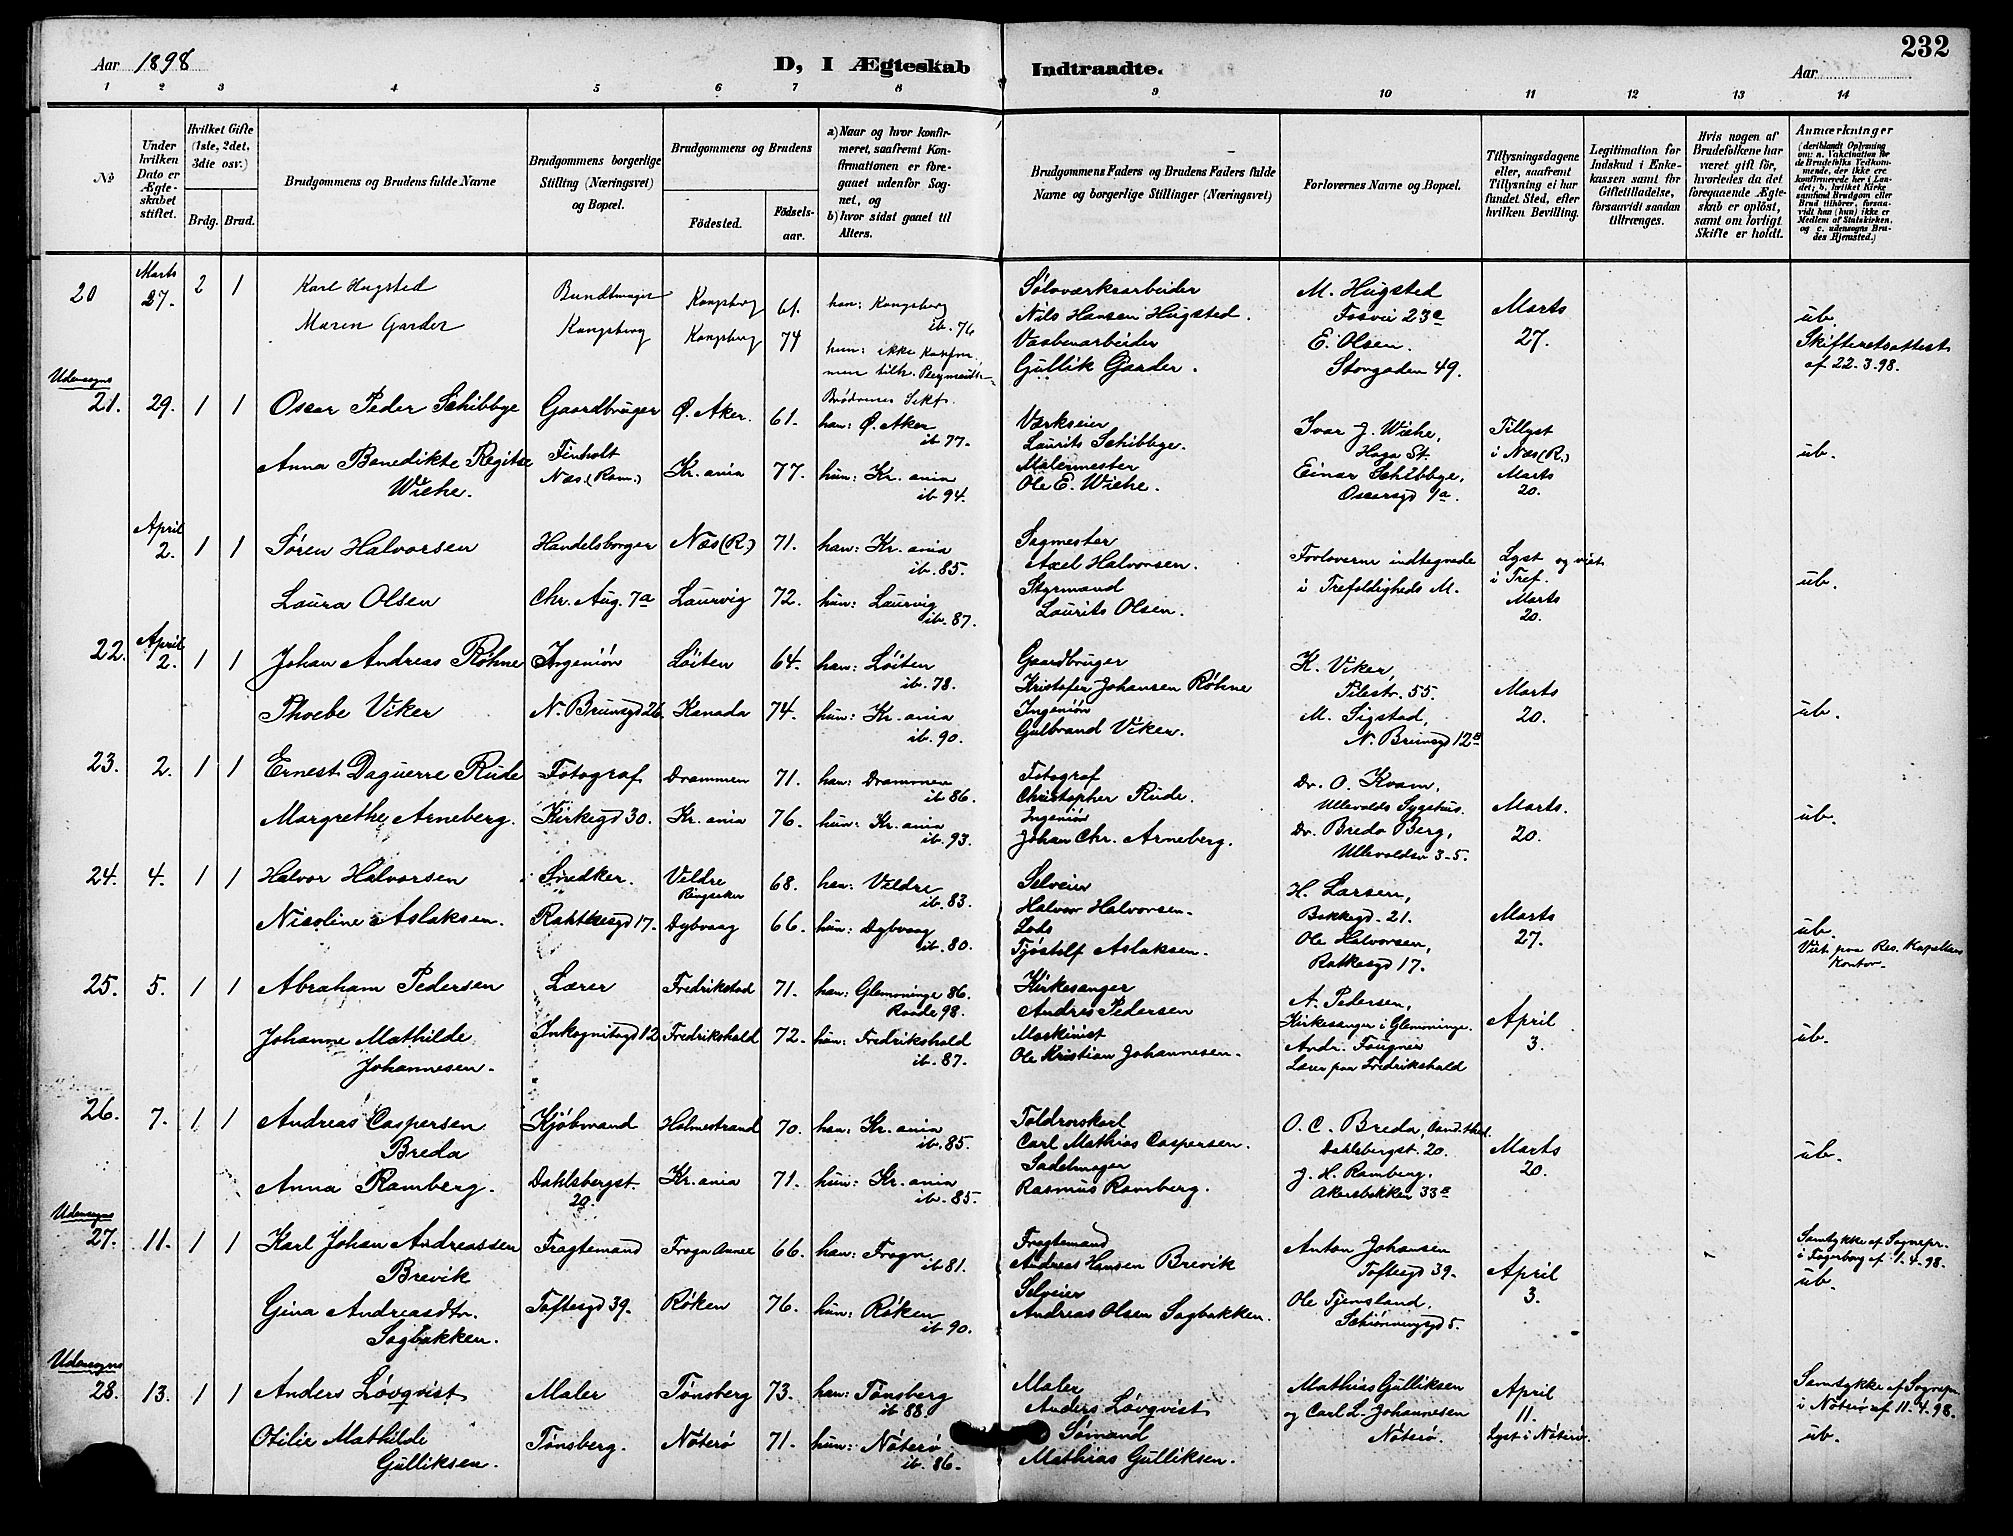 232
Aar 1898 D, I Ægteskab Indtraadte. Aar
1 2 3 4 5 6 7 8 9 10 11 12 13 14
No
Under hvilken Dato er Ægteskabet stiftet.
Hvilket Gifte (1ste, 2det, 3die osv.)
Brdg. Brud.
Brudgommens og Brudens fulde Navne
Brudgommens borgerlige Stilling (Næringsvei) og Bopæl.
Brudgommens og Brudens
Fødested. Fødselsaar.
a) Naar og hvor konfirmeret, saafremt Konfirmationen er foregaaet udenfor Sognet, og
b) hvor sidst gaaet til Alters.
Brudgommens Faders og Brudens Faders fulde Navne og borgerlige Stillinger (Næringsvei)
Forlovernes Navne og Bopæl.
Tillysningsdagene eller, saafremt Tillysning ei har fundet Sted, efter hvilken Bevilling.
Legitimation for Indskud i Enkekassen samt for Giftetilladelse, forsaavidt saadan tiltrænges.
Hvis nogen af Brudefolkene har været gift før, hvorledes da det foregaaende Ægteskab er opløst, samt om lovligt Skifte er holdt.
Anmærkninger (deriblandt Oplysning om: a. Vakcination for de Brudefolks Vedkommende, der ikke ere konfirmerede her i Landet; b. hvilket Kirkesamfund Brudgom eller Brud tilhører, forsaavidt han (hun) ikke er Medlem af Statskirken, og c. udensogns Brudes Hjemsted.)
20 Marts 27. 2 1 Karl Hugsted Bundtmager Kongsberg 61. han: Kongsberg ib. 76 Sølvværksarbeider Nils Hansen Hugsted. M. Hugsted Fosvei 23a Marts 27. ub.
Maren Garder Kongsberg Kongsberg 74 hun: ikke Konfir. Brødrenes Sekt. Gullik Garder. E. Olsen. Storgaden 49. Skifteretsattest af 22-3-98.
Udensogns
21. 29. 1 1 Oscar Peder Schibbye Gaardbruger Ø. Aker. 61. han: Ø. Aker ib 77. Værkseier Laurits Schibbye. Ivar J. Wiehe, Haga St. Tillyst i Næs (R.) Marts 20. ub.
Anna Benedikte Regitse Wiehe. Finholt Næs. (Rom.) Kr. ania 77. hun: Kr. ania ib 94. Malermester Ole E. Wiehe. Einar Schibbye, Oscarsgd 1a.
April 2. 1 1 Søren Halvorsen Handelsborger Næs (R.) 71. han: Kr. ania ib. 85. Sagmester Axel Halvorsen. Forloverne indtegnede i Trefoldigheds M. Lyst og viet i Tref. Marts 20. ub.
Laura Olsen Chr. Aug. 7a Laurvig 72. hun: Laurvig ib. 87. Styrmand Laurits Olsen.
22. April 2. 1 1 Johan Andreas Røhne Ingeniør Løiten 64. han: Løiten ib. 78. Gaardbruger Kristofer Johansen Røhne K. Viker, Pilestr. 55. Marts 20. ub.
Phoebe Viker N. Brunsgd 26. Kanada 74. hun: Kr. ania ib. 90. Ingeniør Gulbrand Viker. M. Sigstad, N. Brunsgd 12a
23. 2. 1 1 Ernest Daguerre Rude Fotograf Drammen 71. han: Drammen ib 86. Fotograf Christopher Rude. Dr. O. Kvam, Ullevolds Sygehus. Marts. 20. ub.
Margrethe Arneberg. Kirkegd 30. Kr. ania 76. hun: Kr. ania ib. 93. Ingeniør Johan Chr. Arneberg. Dr. Breda Berg, Ullevoldsv 3-5.
24. 4. 1 1 Halvor Halvorsen Snedker. Veldre Ringsaker 68. han: Veldre ib. 83. Selveier Halvor Halvorsen. H. Larsen, Bekkegd. 21. Marts 27. ub.
Nicoline Aslaksen. Rathkesgd 17. Dybvaag 66. hun: Dybvaag ib. 80. Lods Tjøstelf Aslaksen. Ole Halvorsen, Ratkesgd 17. Viet paa Res. Kapellans Kontor.
25. 5. 1 1 Abraham Pedersen Lærer Fredrikstad 71. han: Glemminge 86. Raade 98. Kirkesanger Andres Pedersen A. Pedersen, Kirkesanger i Glemminge. April 3. ub.
Johanne Mathilde Johannesen. Inkognitogd 12 Fredrikshald 72. hun: Fredrikshald ib. 87. Maskinist Ole Kristian Johannesen. Andr. Fougner Lærer paa Fredrikshald
26. 7. 1 1 Andreas Caspersen Breda Kjøbmand Holmestrand 70. han: Kr. ania ib. 85. Toldrorskarl Carl Mathias Caspersen. O. C. Breda, Cand. theol. Dahlsbergst. 20. Marts 20. ub.
Anna Ramberg. Dahlsbergst. 20. Kr. ania 71. hun: Kr. ania ib. 85. Sadelmager Rasmus Ramberg. J. H. Ramberg, Akersbakken 33a
Udensogns
27. 11. 1 1 Karl Johan Andreassen Brevik Fragtemand Frogn Annex 66. han: Frogn ib 81. Fragtemand Andreas Hansen Brevik Anton Johansen Toftesgd 39. April 3. Samtykke af Sognepr. i Fagerborg af 1.4.98. ub.
Gina Andreasdtr. Sagbakken. Toftesgd 39. Røken 76. hun: Røken ib 90. Selveier Andreas Olsen Sagbakken. Ole Tjemsland, Schønningsgd 5.
Udensogns
28. 13. 1 1 Anders Løvqvist Maler Tønsberg 73. han: Tønsberg ib 88. Maler Anders Løvqvist Mathias Gulliksen April 11. Samtykke af Sognepr. i Nøterø af 11.4.98. ub.
Otilie Mathilde Gulliksen. Tønsberg. Nøterø 71. hun: Nøterø ib. 86. Sømand Mathias Gulliksen. og Carl L. Johannesen Nøterø. Lyst i Nøterø.